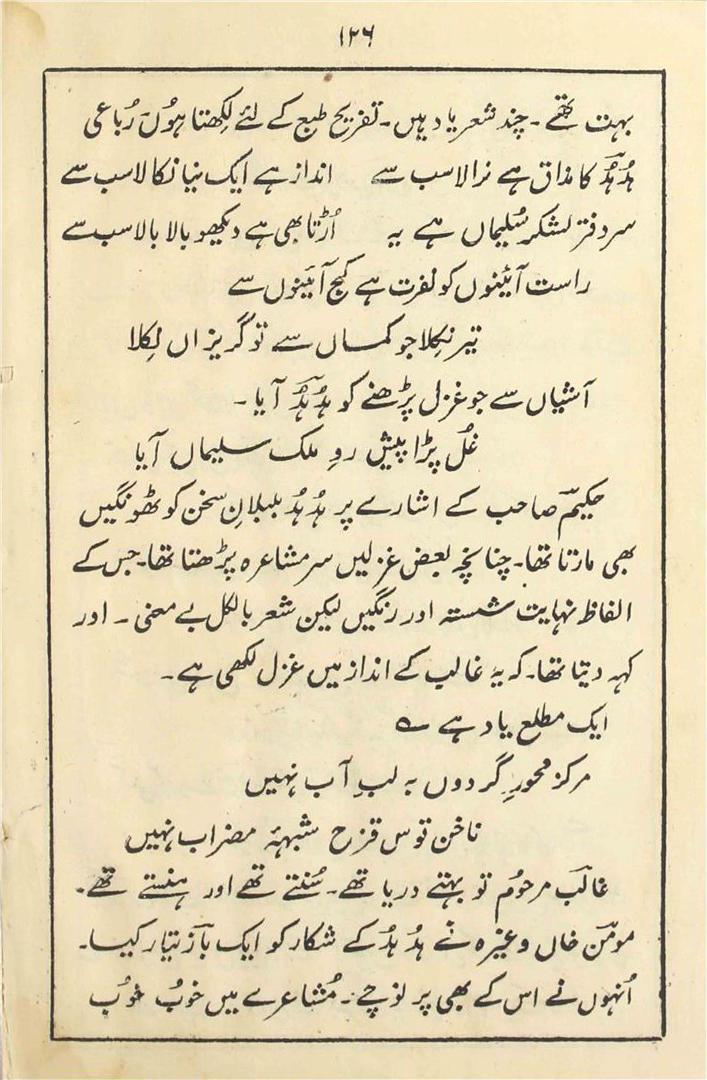 ۱۲۶
بہت تھے۔ چند شعر یاد ہیں۔ تفریح طبع کے لئے لکھتا ہوں رُباعی
ہُدہُد کا مذاق ہے نرالا سب سے انداز ہے ایک نیا نکالا سب سے
سر دفتر لشکر سُلیماں ہے یہ اُڑتا بھی ہے دیکھو بالا بالا سب سے
راست آئنوں کو نفرت ہے کج آئینوں سے
تیر نکلا جو کماں سے تو گریزاں نکلا
آشیاں سے جو غزل پڑھنے کو ہُدہُد آیا۔
غُل پڑا پیش روِ ملک سلیماں آیا
حکیم صاحب کے اشارے پر ہُدہُد بلبلانِ سخن کو ٹھونگیں
بھی مارتا تھا۔ چنانچہ بعض غزلیں سر مشاعرہ پڑھتا تھا۔ جس کے
الفاظ نہایت شستہ اور رنگیں لیکن شعر بالکل بے معنی۔ اور
کہہ دیتا تھا۔ کہ یہ غالب کے انداز میں غزل لکھی ہے۔
ایک مطلع یاد ہے ؎
مرکز محورِ گردوں بہ لبِ آب نہیں
ناخن قوس قزح شبہۂ مضراب نہیں
غالب مرحوم تو بہتے دریا تھے۔ سُنتے تھے اور ہنستے تھے۔
مومن خاں وغیرہ نے ہُدہُد کے شکار کو ایک باز تیار کیا۔
اُنہوں نے اس کے بھی پر نوچے۔ مُشاعرے میں خوبُ خوُب